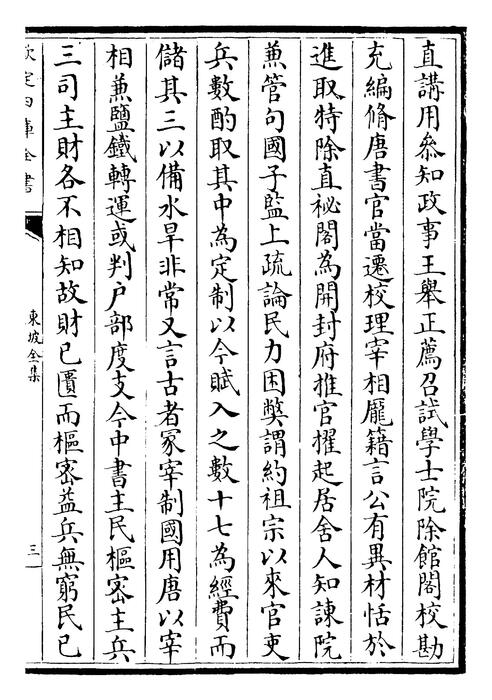 直講用叅知政事王舉正薦召試學士院除館閣校勘
充編脩唐書官當遷校理宰相龐籍言公有異材恬於
進取特除直祕閣為開封府推官擢起居舍人知諫院
兼管句國子監上疏論民力困弊謂約祖宗以來官吏
兵數酌取其中為定制以今賦入之數十七為經費而
儲其三以備水旱非常又言古者冢宰制國用唐以宰
相兼鹽鐵轉運或判户部度支今中書主民樞密主兵
三司主財各不相知故財已匱而樞密益兵無窮民已
欽定四庫全書
東坡全集
三